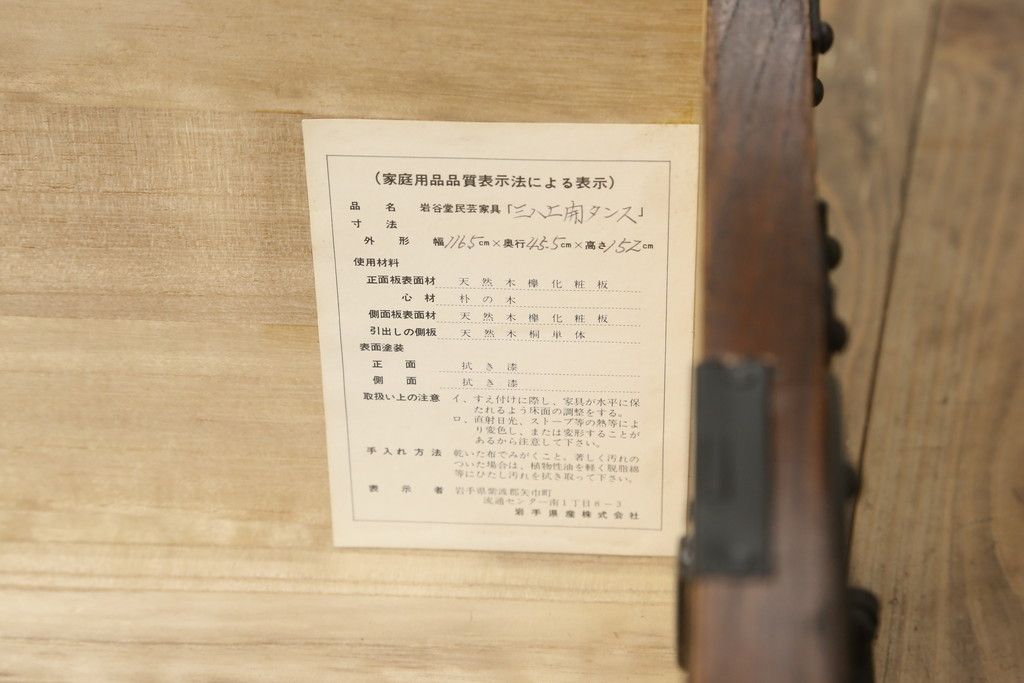 (家庭用品品質表示法による表示)
品名 岩谷堂民芸家具「三八上開タンス」
寸法
外形 幅116.5cm×奥行45.5cm×高さ152cm
使用材料
正面板表面材 天然木欅化粧板
心材 朴の木
側面板表面材 天然木欅化粧板
引出しの側板 天然木桐単体
表面塗装
正面 拭き漆
側面 拭き漆
取扱い上の注意 イ、すえ付けに際し、家具が水平に保
たれるよう床面の調整をする。
ロ、直射日光、ストーブ等の熱等によ
り変色し、または変形することが
あるから注意して下さい。
手入れ方法 乾いた布でみがくこと。著しく汚れの
ついた場合は、植物性油を軽く脱脂綿
等にひたし汚れを拭き取って下さい。
表示者 岩手県紫波郡矢巾町
流通センター南1丁目8−3
岩手県産株式会社